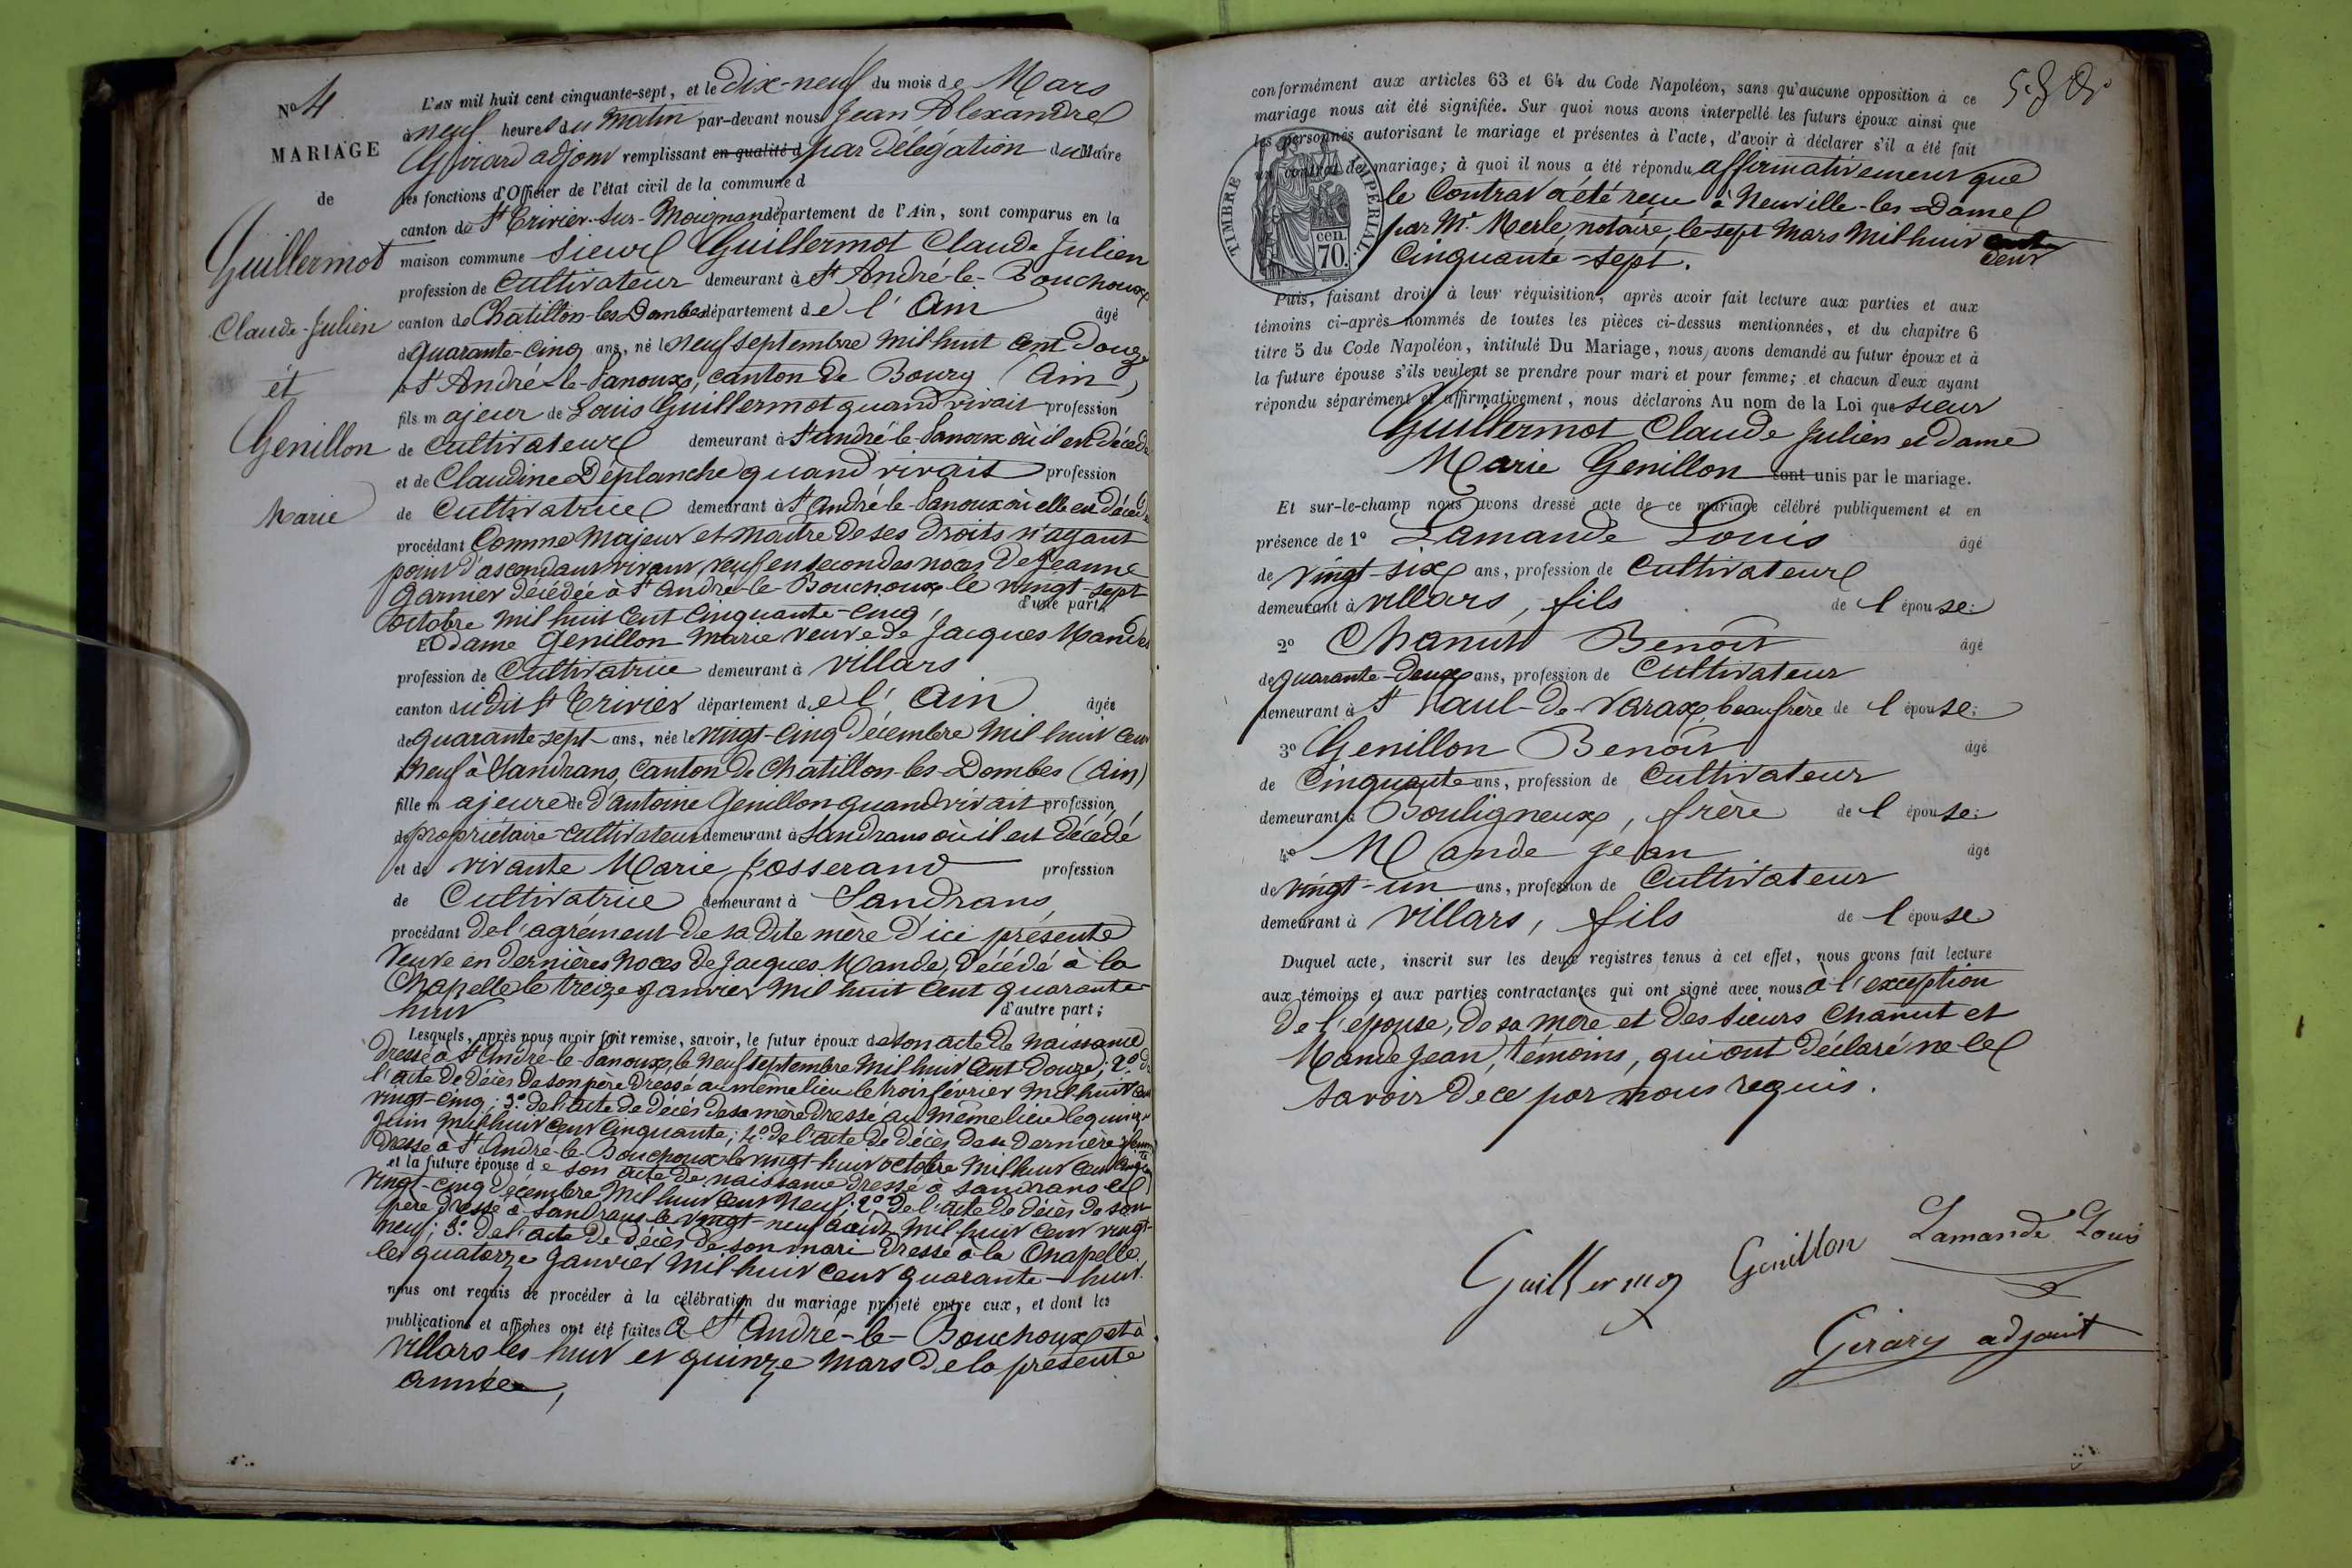 No 4
MARIAGE
de
Guillermot
Claude-Julien
et
Genillon
Marie
L'AN mil huit cent cinquante-sept, et le Dix-neuf du mois de Mars
à neuf heures du Matin par-devant nous Jean Alexandre
Girard adjoint remplissant en qualité d par Délégation du Maire
les fonctions d'Officier de l'état civil de la commune d
canton de St Trivier-sur-Moignans département de l'Ain, sont comparus en la
maison commune sieur Guillermot Claude Julien
profession de Cultivateur demeurant à St André-le-Bouchoux
canton de Châtillon-les-Dombes département de l'Ain âgé
de quarante-cinq ans, né le neuf septembre mil huit cent douze
à St André-le-Panoux, canton de Bourg (Ain)
fils majeur de Louis Guillermot quand vivait profession
de Cultivateur demeurant à St andré-le-Panoux où il est décédé
et de Claudine Déplanche quand vivait profession
de Cultivatrice demeurant à St André-le-Panoux où elle est décédée
procédant Comme Majeur et Maître de ses Droits n'ayant
point d'ascendant vivant, veuf en secondes noces de Jeanne
Garnier décédée à St André-le-Bouchoux le vingt-sept
octobre mil huit cent cinquante-cinq, d'une part,
Et Dame Genillon Marie veuve de Jacques Mande
profession de Cultivatrice demeurant à Villars
canton dudit St Trivier département de l'Ain âgée
de quarante-sept ans, née le vingt-cinq Décembre Mil huit cent
neuf à Sandrans, Canton de Chatillon-les-Dombes (Ain)
fille majeure de d'antoine Genillon quand vivait profession
de propriétaire-cultivateur demeurant à Sandrans où il est Décédé
et de vivante Marie Josserand profession
de Cultivatrice demeurant à Sandrans,
procédant de l'agrément de sa dite mère d'ici présente
Veuve en dernières Noces de Jacques Mande, Décédé à la
Chapelle le treize Janvier Mil huit cent quarante-
huit d'autre part;
Lesquels, après nous avoir fait remise, savoir, le futur époux de son acte de naissance
Dressé à St André-le-Panoux, le Neuf septembre Mil huit Cent Douze; 2o de
l'acte de décès de son père dressé au même lieu le trois février Mil-huit cent
vingt-cinq; 3o de l'acte de décès de sa mère Dressé au même lieu le quinze
Juin Mil huit cent Cinquante; 4o de l'acte de Décès de sa dernière femme
Dressé à St André-le-Bouchoux le vingt-huit octobre Mil huit cent
et la future épouse de son acte de naissance dressé à Sandrans le
vingt-cinq Décembre Mil huit cent Neuf; 2o de l'acte de décès de son
père dressé à Sandrans le vingt-neuf août Mil huit cent vingt-
neuf; 3o de l'acte de décès de son mari Dressé à la Chapelle
le quatorze Janvier Mil huit cent quarante-huit.
nous ont requis de procéder à la célébration du mariage projeté entre eux, et dont les
publications et affiches ont été faites à St André-le-Bouchoux et à
Villars les huit et quinze Mars de la présente
année,
conformément aux articles 63 et 64 du Code Napoléon, sans qu'aucune opposition à ce
mariage nous ait été signifiée. Sur quoi nous avons interpellé les futurs époux ainsi que
les personnes autorisant le mariage et présentes à l'acte, d'avoir à déclarer s'il a été fait
un contrat de mariage; à quoi il nous a été répondu affirmativement que
le Contrat a été reçu à Neuville-les-Dames
par Mr. Merle, notaire, le sept Mars Mil huit
cent
Cinquante-sept.
TIMBRE IMPERIAL
cen.
70.
Puis, faisant droit à leur réquisition, après avoir fait lecture aux parties et aux
témoins ci-après nommés de toutes les pièces ci-dessus mentionnées, et du chapitre 6
titre 5 du Code Napoléon, intitulé Du Mariage, nous avons demandé au futur époux et à
la future épouse s'ils veulent se prendre pour mari et pour femme; et chacun d'eux ayant
répondu séparément et affirmativement, nous déclarons Au nom de la Loi que sieur
Guillermot Claude Julien et dame
Marie Genillon sont unis par le mariage.
Et sur-le-champ nous avons dressé acte de ce mariage célébré publiquement et en
présence de 1o Lamande Louis âgé
de vingt-six ans, profession de Cultivateur
demeurant à Villars, fils de l'épouse;
2o Chanut Benoît âgé
de quarante-deux ans, profession de Cultivateur
demeurant à St Paul-de-Varax, beaufrère de l'épouse;
3o Genillon Benoît âgé
de Cinquante ans, profession de Cultivateur
demeurant à Bouligneux, frère de l'épouse;
4o Mande Jean âgé
de vingt-un ans, profession de Cultivateur
demeurant à Villars, fils de l'épouse
Duquel acte, inscrit sur les deux registres tenus à cet effet, nous avons fait lecture
aux témoins et aux parties contractantes qui ont signé avec nous à l'exception
De l'épouse, de sa mère et des sieurs Chanut et
Mande Jean, témoins, qui ont déclaré ne le
savoir de ce par nous requis.
Guillermot Genillon Lamande Louis
Girard adjoint